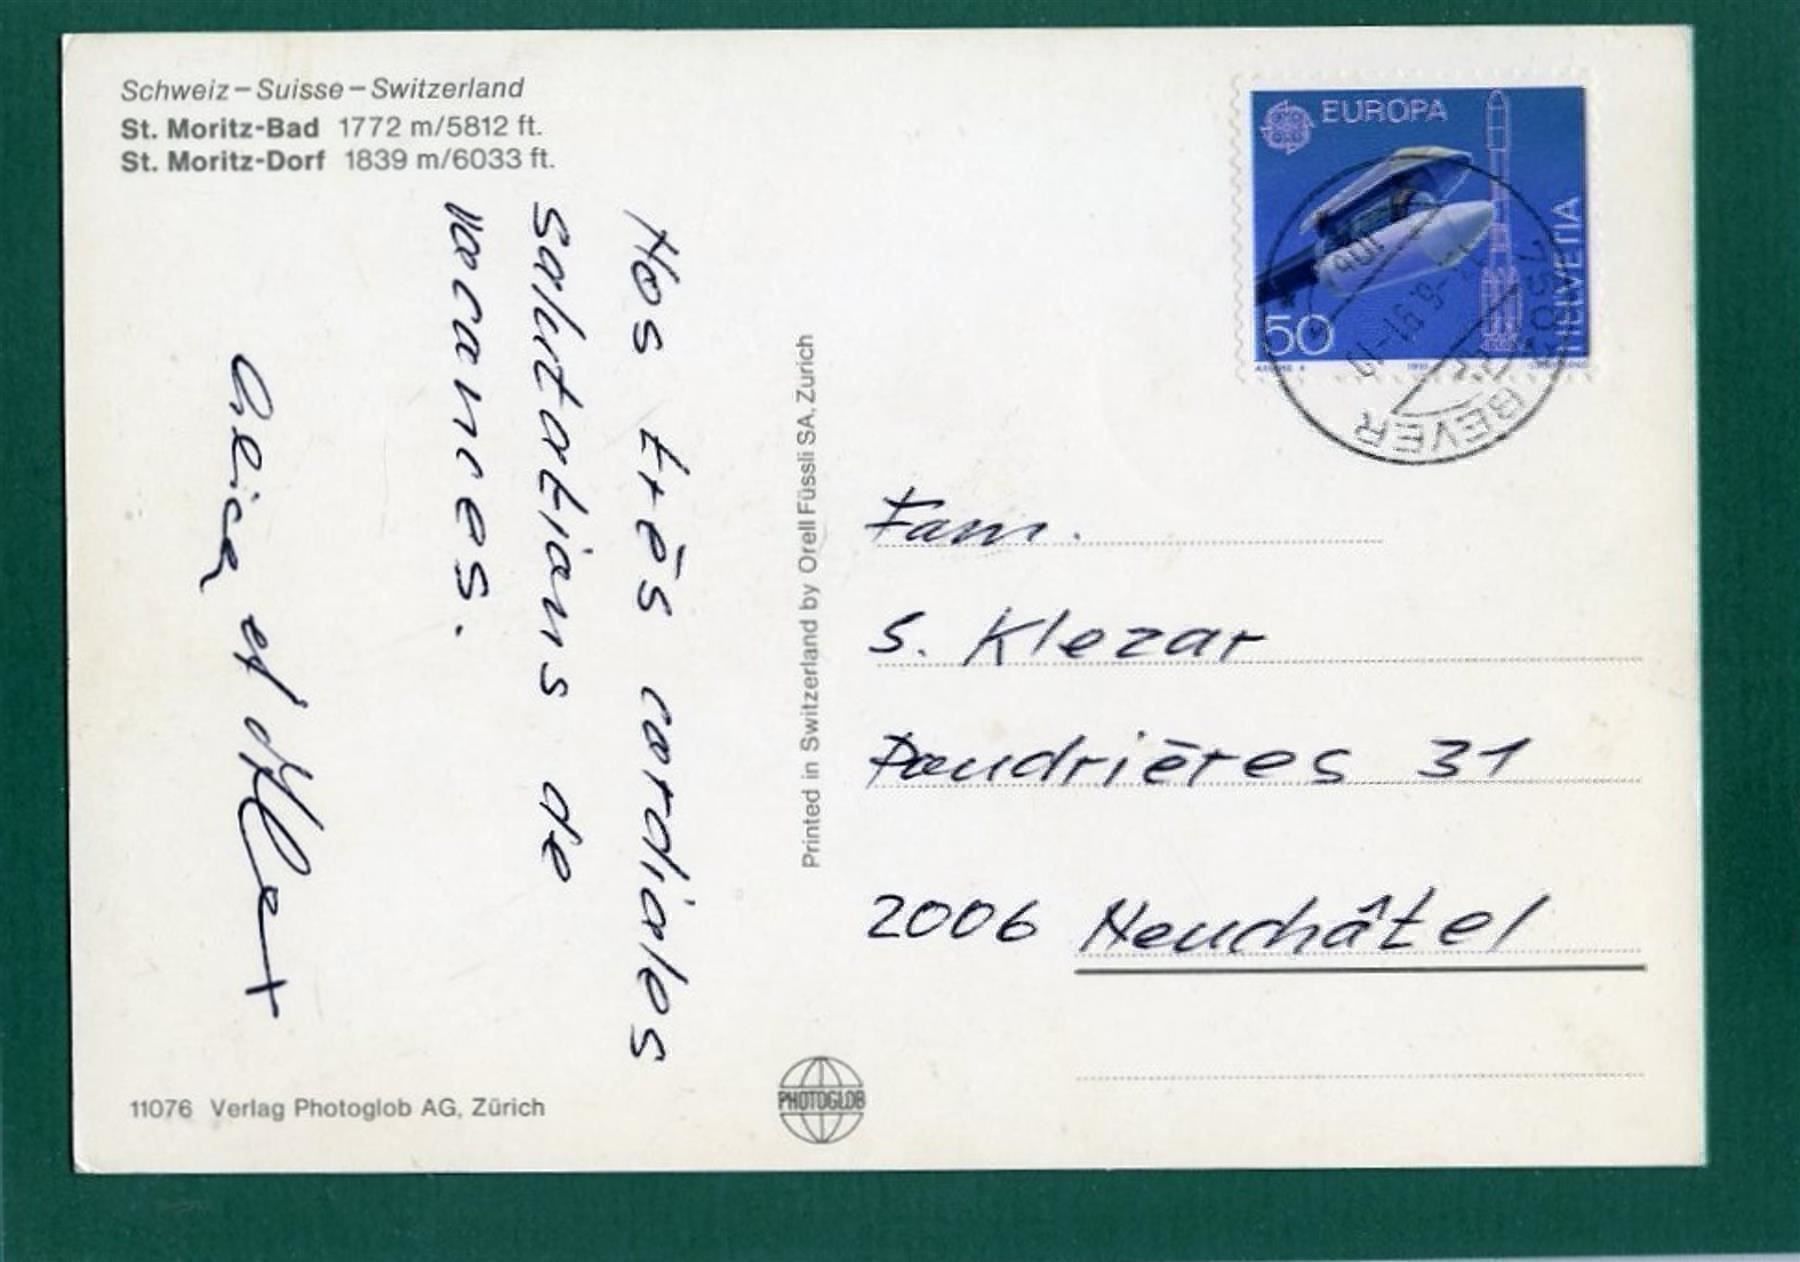 Schweiz – Suisse – Switzerland
St. Moritz-Bad 1772 m/5812 ft.
St. Moritz-Dorf 1839 m/6033 ft.
Nos très cordiales
salutations de
vacances.
et
Printed in Switzerland by Orell Füssli SA, Zürich
EUROPA
HELVETIA
50
BEVER
Fam.
S. Klezar
31
2006 Neuchâtel
11076 Verlag Photoglob AG, Zürich
PHOTOGLOB